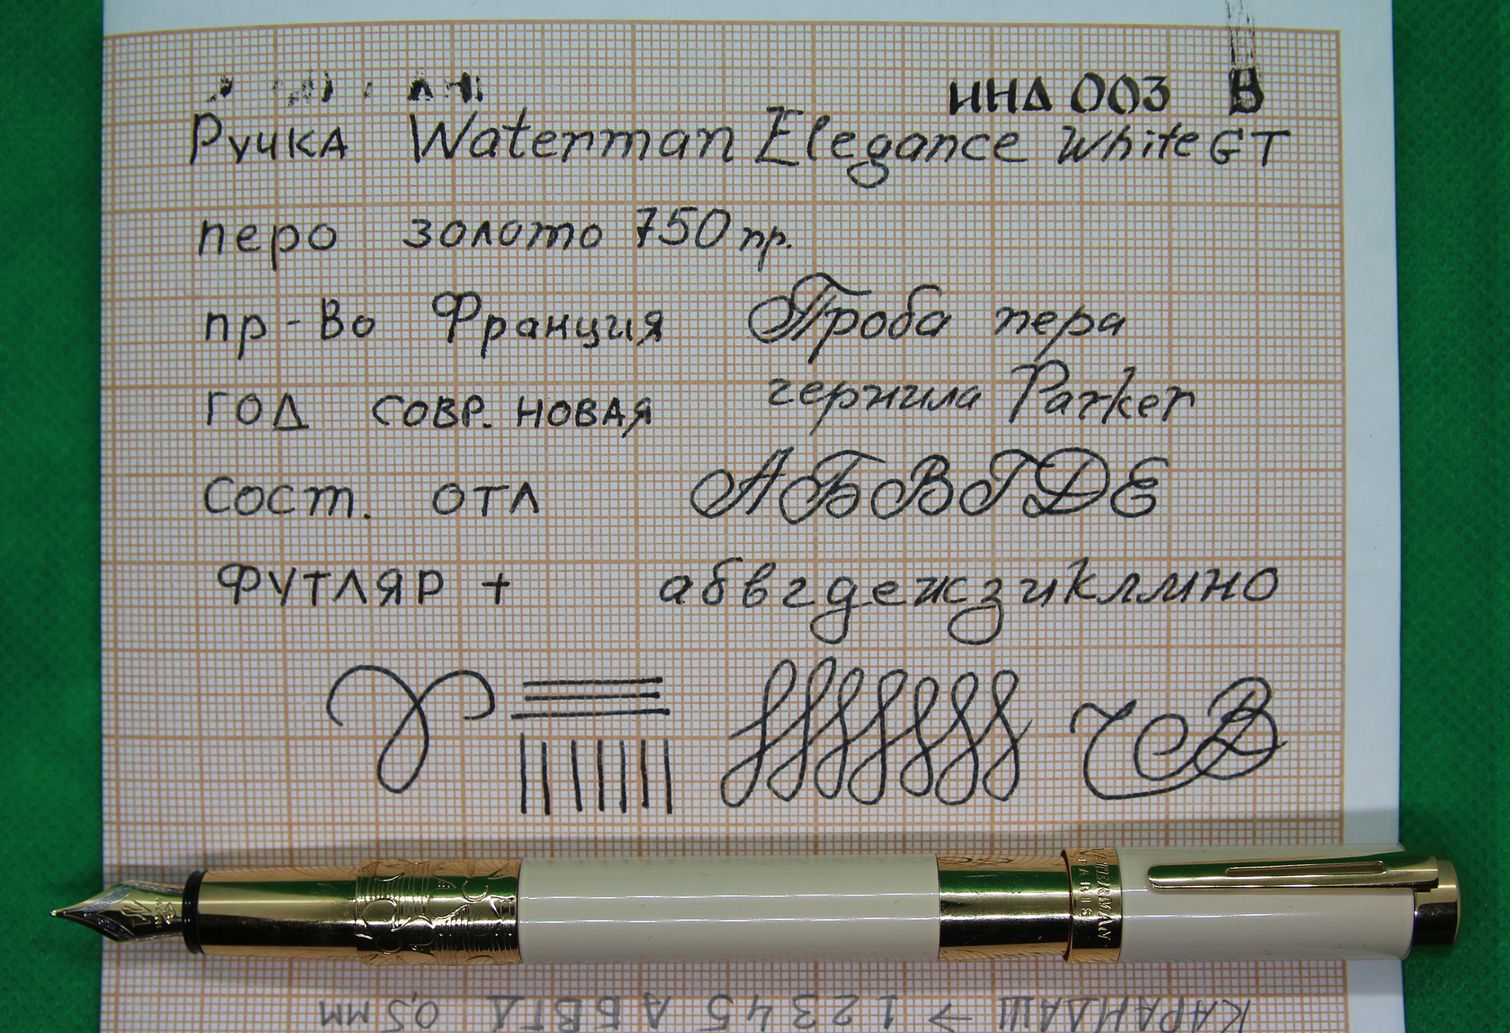 ИНД 003 В
Ручка Waterman Elegance White GT
перо золото 750 пр.
пр-во Франция
год совр. новая
сост. отл
футляр +
Проба пера
чернила Parker
АБВГДЕ
абвгдежзиклмно
WATERMAN
PARIS
КАРАНДАШ → 12345 АБВГД 0,5 мм